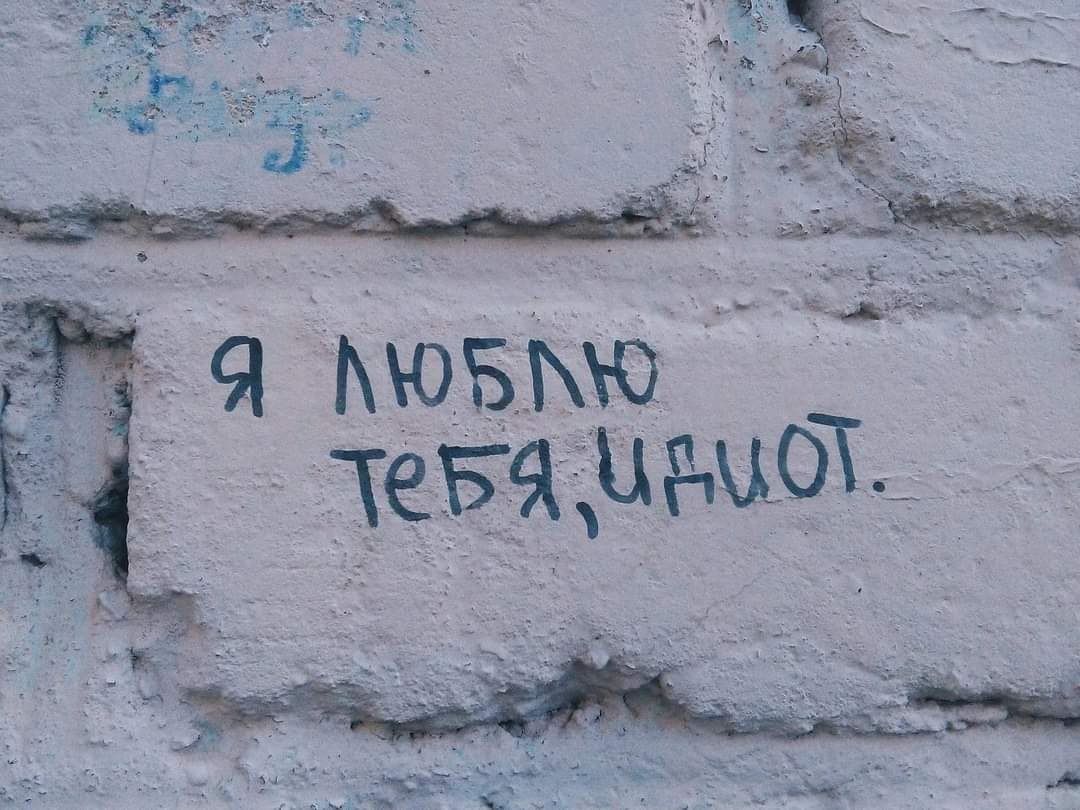 Я ЛЮБЛЮ
ТеБЯ, ИДИОТ.